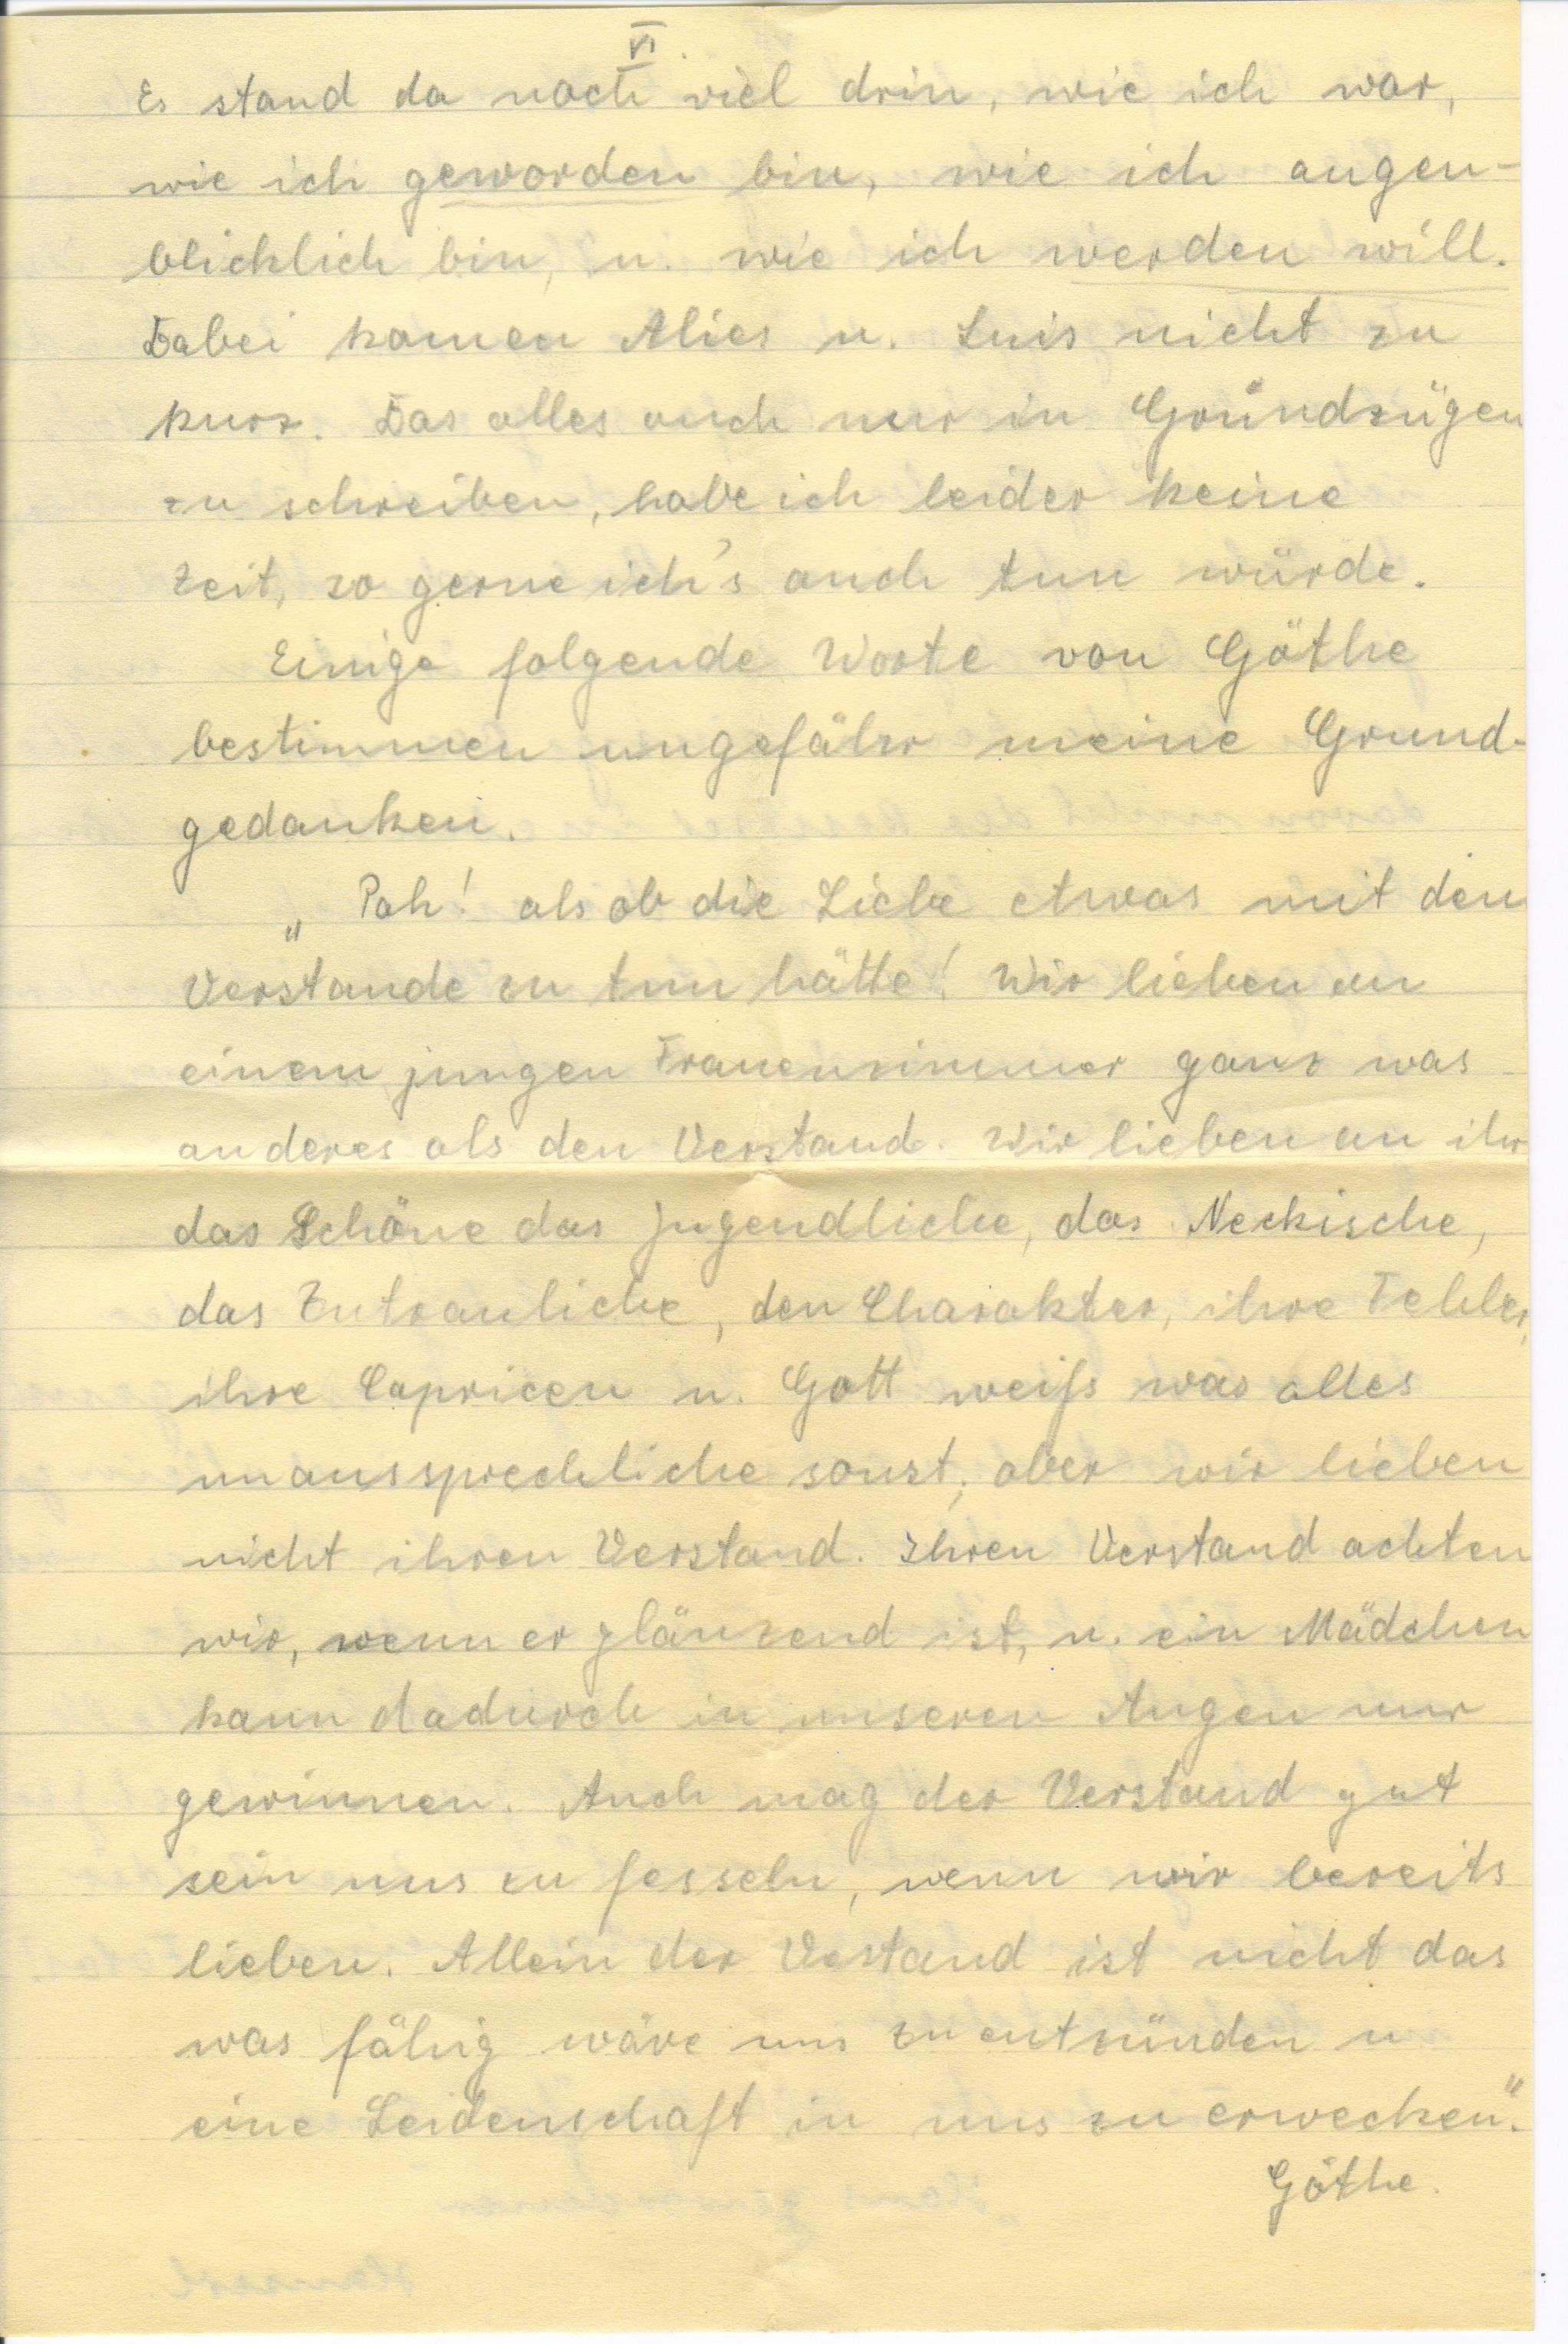 VI.
Es stand da noch viel drin, wie ich war,
wie ich geworden bin, wie ich augen-
blicklich bin, u. wie ich werden will.
Dabei kamen Alies u. Luis nicht zu
kurz. Das alles auch nur in Grundzügen
zu schreiben, habe ich leider keine
Zeit, so gerne ich's auch tun würde.
Einige folgende Worte von Göthe
bestimmen ungefähr meine Grund-
gedanken.
„Pah! als ob die Liebe etwas mit dem
Verstande zu tun hätte! Wir lieben an
einem jungen Frauenzimmer ganz was
anderes als den Verstand. Wir lieben an ihr
das Schöne das Jugendliche, das Neckische,
das Zutrauliche, den Charakter, ihre Fehler,
ihre Capricen u. Gott weiß was alles
unaussprechliche sonst; aber wir lieben
nicht ihren Verstand. Ihren Verstand achten
wir, wenn er glänzend ist, u. ein Mädchen
kann dadurch in unseren Augen nur
gewinnen. Auch mag der Verstand gut
sein uns zu fesseln, wenn wir bereits
lieben. Allein der Vestand ist nicht das
was fähig wäre uns zu entzünden u
eine Leidenschaft in uns zu erwecken".
Göthe.